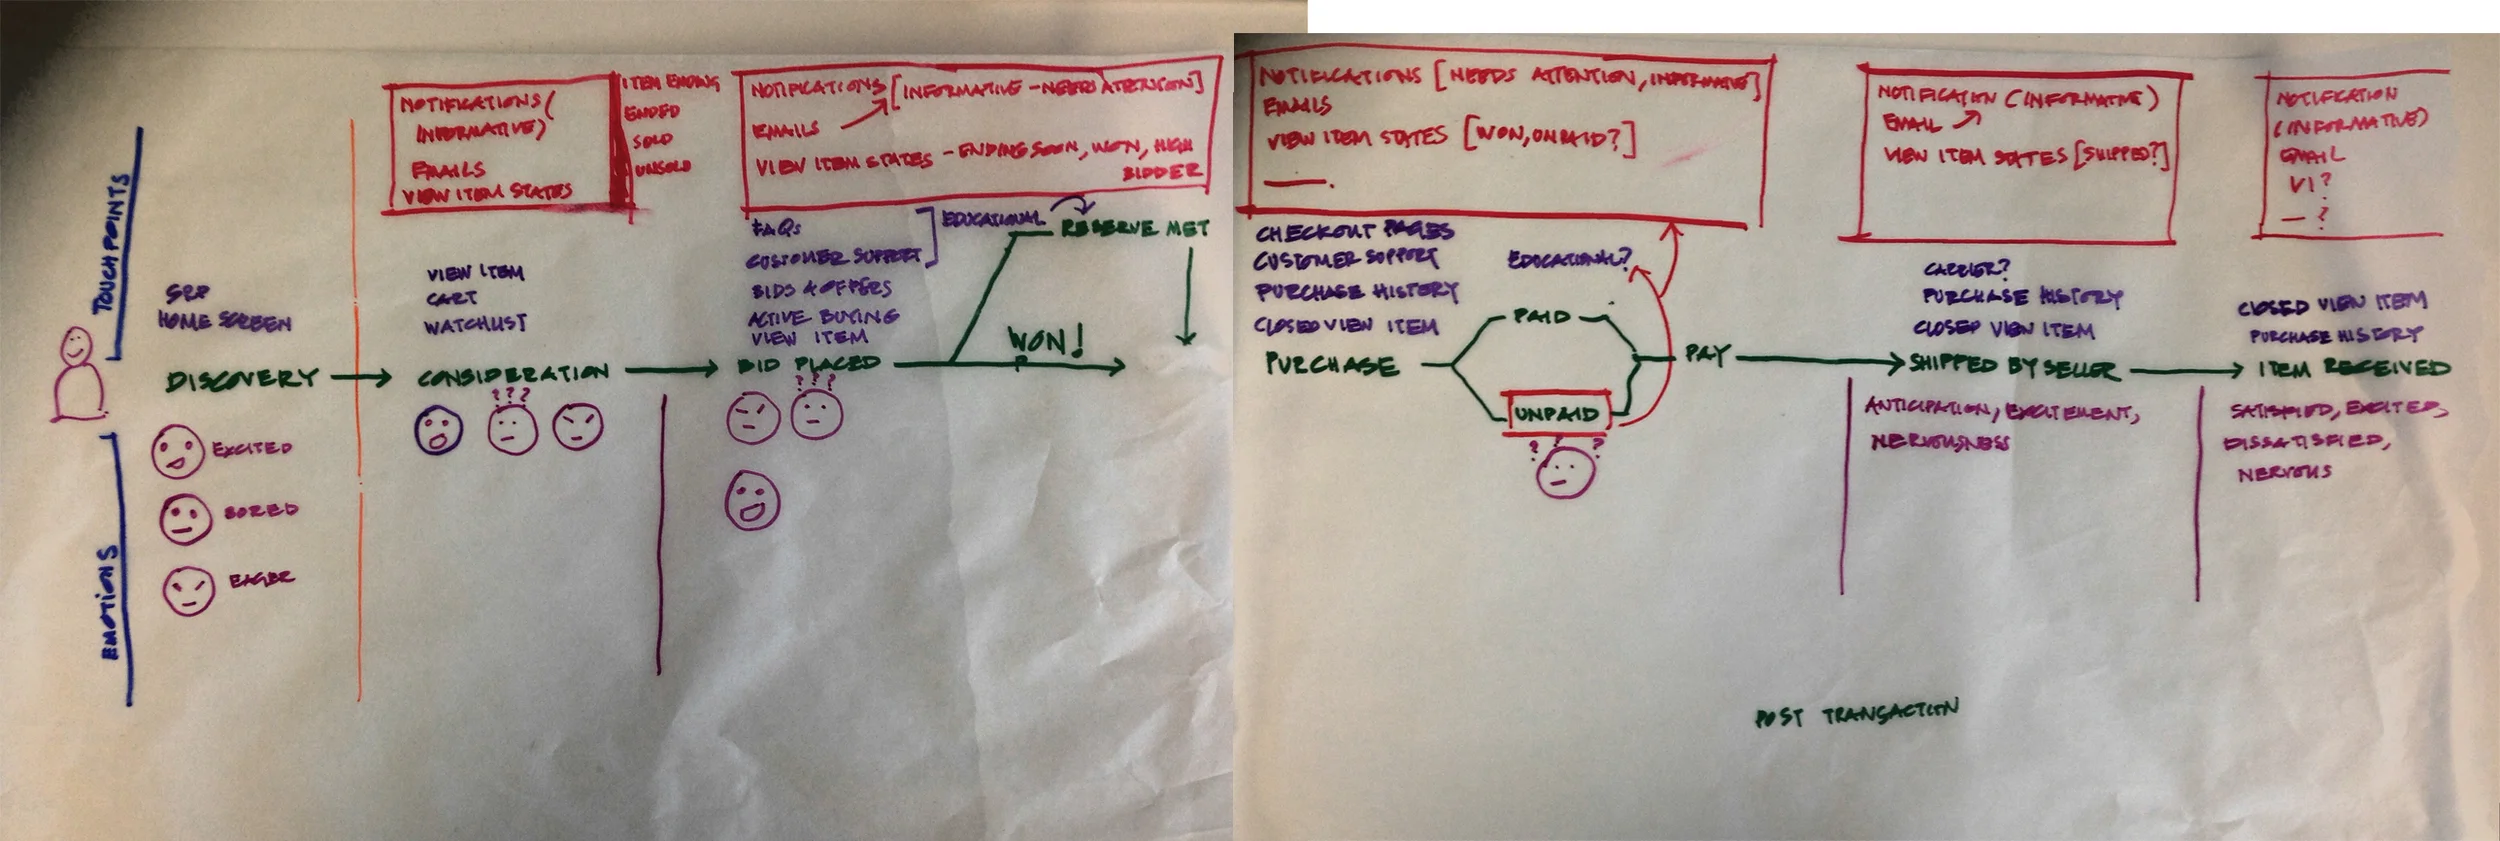 TOUCHPOINTS
EMOTIONS
SRP
HOME SCREEN
DISCOVERY
EXCITED
BORED
EAGER
NOTIFICATIONS (
INFORMATIVE)
EMAILS
VIEW ITEM STATES
ITEM ENDING
ENDED
SOLD
UNSOLD
VIEW ITEM
CART
WATCHLIST
CONSIDERATION
???
NOTIFICATIONS [INFORMATIVE - NEEDS ATTENSION]
EMAILS
VIEW ITEM STATES - ENDING SOON, WON, HIGH
BIDDER
FAQs
CUSTOMER SUPPORT
EDUCATIONAL
RESERVE MET
BIDS & OFFERS
ACTIVE BUYING
VIEW ITEM
BID PLACED
WON!
???
NOTIFICATIONS [NEEDS ATTENTION, INFORMATIVE]
EMAILS
VIEW ITEM STATES [WON, UNPAID?]
CHECKOUT PAGES
CUSTOMER SUPPORT
PURCHASE HISTORY
CLOSED VIEW ITEM
PURCHASE
EDUCATIONAL?
PAID
UNPAID
? ? ?
PAY
NOTIFICATION (INFORMATIVE)
EMAIL
VIEW ITEM STATES [SHIPPED?]
CARRIER?
PURCHASE HISTORY
CLOSED VIEW ITEM
SHIPPED BY SELLER
ANTICIPATION, EXCITEMENT,
NERVOUSNESS
NOTIFICATION
(INFORMATIVE)
EMAIL
VI?
— ?
CLOSED VIEW ITEM
PURCHASE HISTORY
ITEM RECEIVED
SATISFIED, EXCITED,
DISSATISFIED,
NERVOUS
POST TRANSACTION